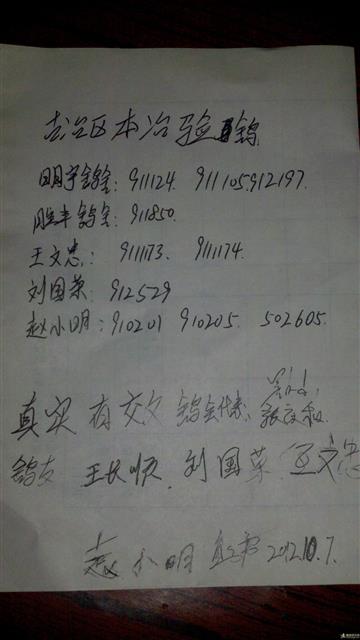 古冶区本冶验鸽
明宇鸽舍: 911124. 911105.912197.
胜丰鸽舍: 911850.
王文忠: 911173. 911174.
刘国荣: 912529
赵小明: 910201 910205. 502605.
真实有效 鸽会代表:
鸽友 王长顺. 刘国荣 王文忠
赵小明 2012.10.7.